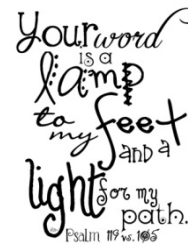 Your word
is a
lamp
to my feet
and a
light for my
path.
Psalm 119 vs. 105